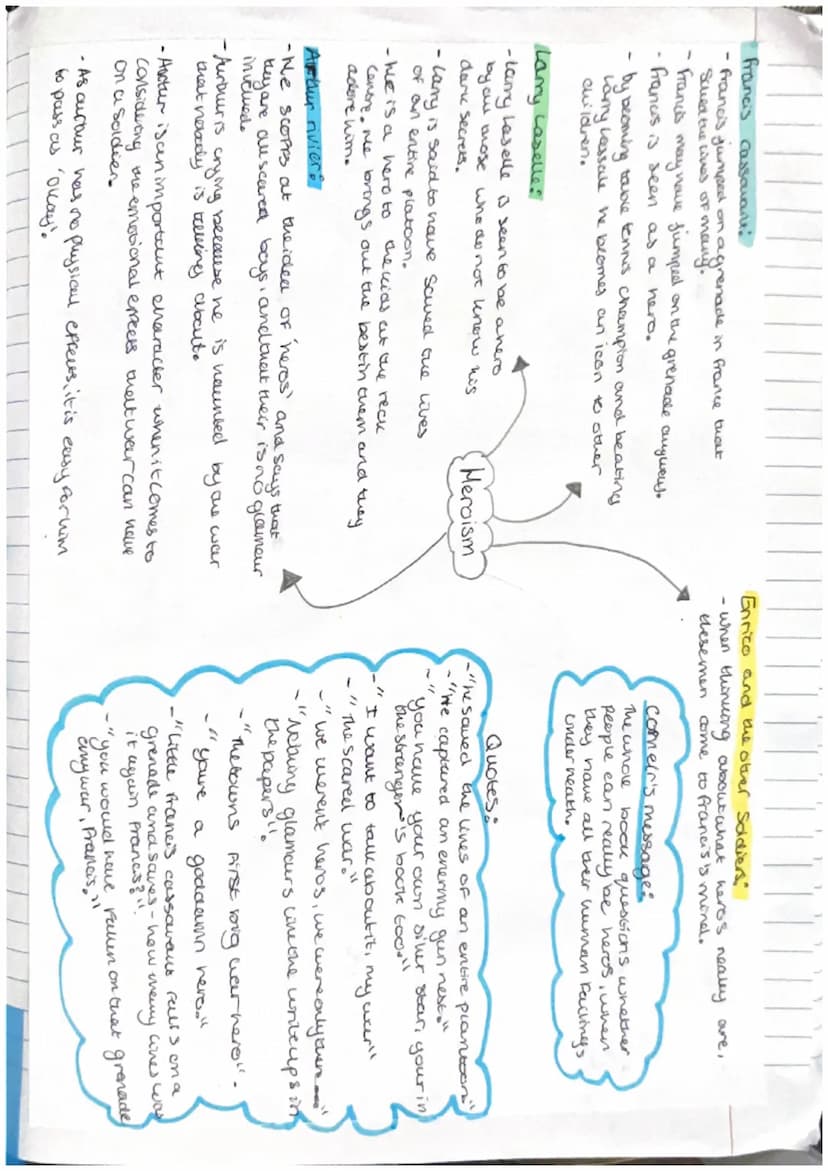 Francis Cassavant:
- Francis jumped on a grenade in France that
saved the lives of many.
- Francis may have jumped on the grenade anyways.
- Francis is seen as a hero.
- by becoming table tennis champion and beating
Larry Lassale he becomes an icon to other
children.
Larry Laselle:
- Larry Laselle is seen to be a hero
by all those who do not know his
dark secrets.
- Larry is said to have saved the lives
of an entire platoon.
- He is a hero to the kids at the reck
centre. He brings out the best in them and they
adore him.
Arthur rivier:
- He scoffs at the idea of 'heros' and says that
they are all scared boys, and that their is no glamour
involved.
- Arthur is crying because he is haunted by the war
that nobody is talking about.
- Arthur is an important character when it comes to
considering the emotional effects that war can have
on a soldier.
- As arthur has no physical effects, it is easy for him
to pass as 'okay'.
Heroism
Enrico and the other Soldiers:
- when thinking about what heros really are,
these men come to Francis's mind.
Cormeir's message:
The whole book questions whether
people can really be heros, when
they have all their human failings
underneath.
Quotes:
- "he saved the lives of an entire plantoon"
- "He captured an enermy gun nest."
- "you have your own silver star, your in
the stranger's book too."
- "I want to talk about it, my war"
- "The scared war."
- "we werent heros, we were only there"
- "Nothing glamours like the write ups in
the papers".
- "The towns first big war hero" -
- "youre a goddamn hero."
- "Little Francis cassavant falls on a
grenade and saves - how many lives was
it again Francis?".
- "you would have fallen on that grenade
anyway, Francis."